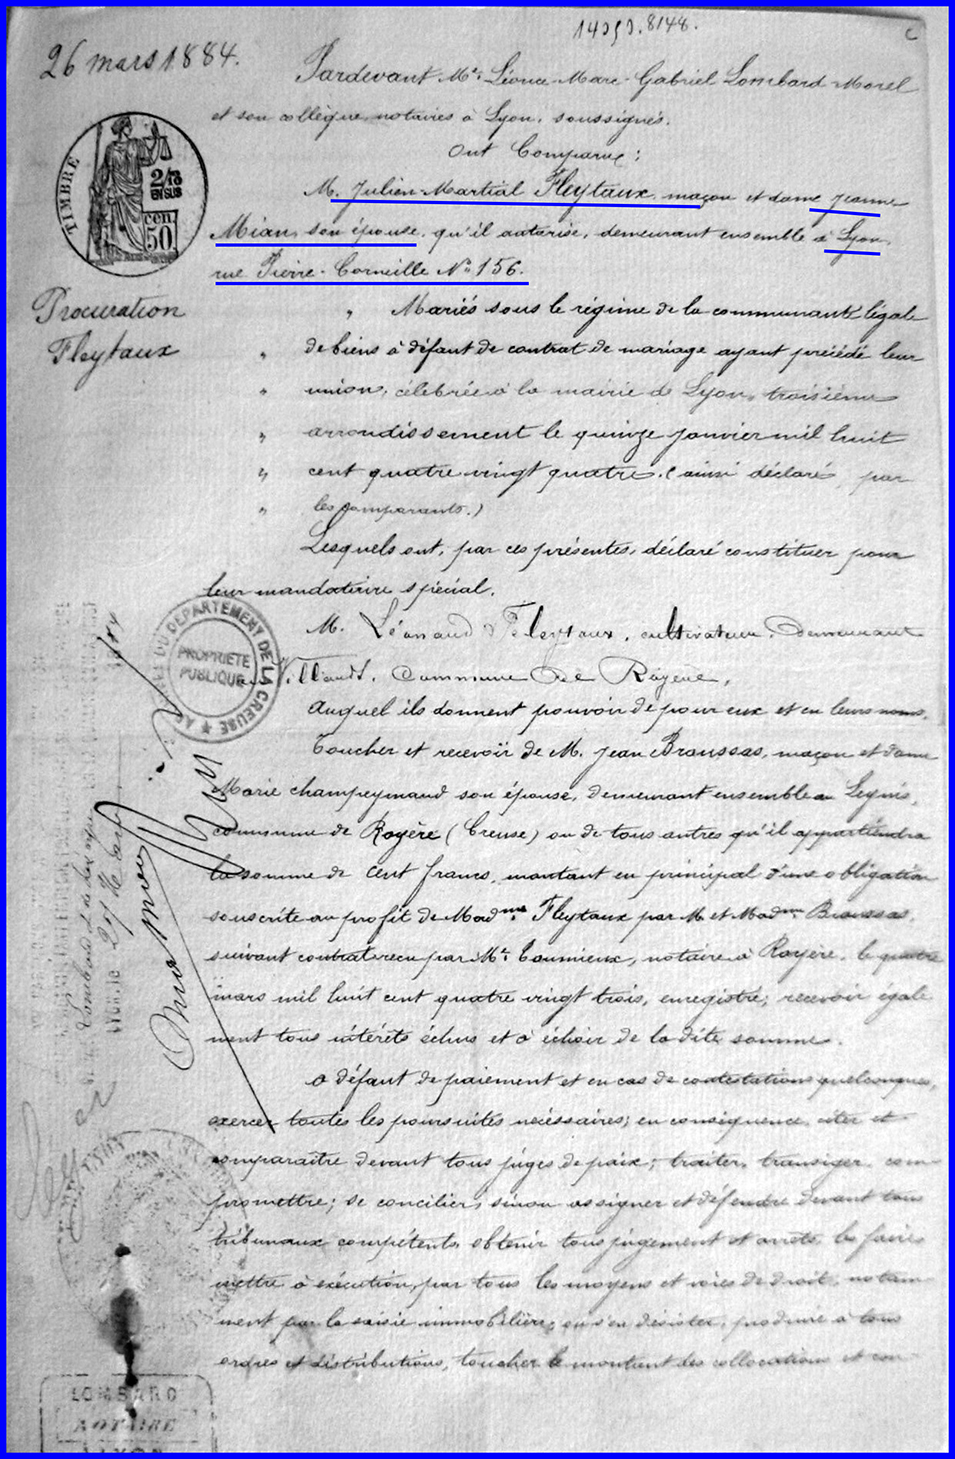 14953.8148.
26 mars 1884.
Pardevant Me. Léonce-Marc-Gabriel Lombard-Morel
et son collègue, notaires à Lyon, soussignés.
Ont Comparu:
TIMBRE
2/10
EN SUS
50 cen
Procuration
Fleytaux
M. Julien-Martial Fleytaux, maçon et dame Jeanne
Mian, son épouse, qu'il autorise, demeurant ensemble à Lyon,
rue Pierre-Corneille No 156.
" Mariés sous le régime de la communauté légale
" de biens à défaut de contrat de mariage ayant précédé leur
" union, célébrée à la mairie de Lyon, troisième
" arrondissement le quinze janvier mil huit
" cent quatre vingt quatre. (ainsi déclaré par
" les comparants.)
Lesquels ont, par ces présentes, déclaré constituer pour
leur mandataire spécial.
M. Léonard Fleytaux, cultivateur, demeurant
Commune de Royère,
DU DEPARTEMENT DE LA CREUSE
PROPRIETE
PUBLIQUE
Auquel ils donnent pouvoir de pour eux et en leurs noms,
Toucher et recevoir de M. Jean Broussas, maçon et dame
Marie Champeymaud son épouse, demeurant ensemble au
commune de Royère (Creuse) ou de tous autres qu'il appartiendra
la somme de Cent francs, montant en principal d'une obligation
souscrite au profit de Madme Fleytaux par M et Madme Broussas,
suivant contrat reçu par Me notaire à Royère, le quatre
mars mil huit cent quatre vingt trois, enregistré; recevoir égale
ment tous intérêts échus et à échoir de la dite somme.
A défaut de paiement et en cas de contestations quelconques,
exercer toutes les poursuites nécessaires; en conséquence citer et
comparaître devant tous juges de paix; traiter, transiger, com
promettre; se concilier; sinon assigner et défendre devant tous
tribunaux compétents, obtenir tous jugement et arrêts, les faire
mettre à exécution, par tous les moyens et voies de droit, notam
ment par la saisie immobilière; ou s'en désister, produire à tous
ordres et distributions, toucher le montant des collocations et con
LOMBARD
NOTAIRE
LYON